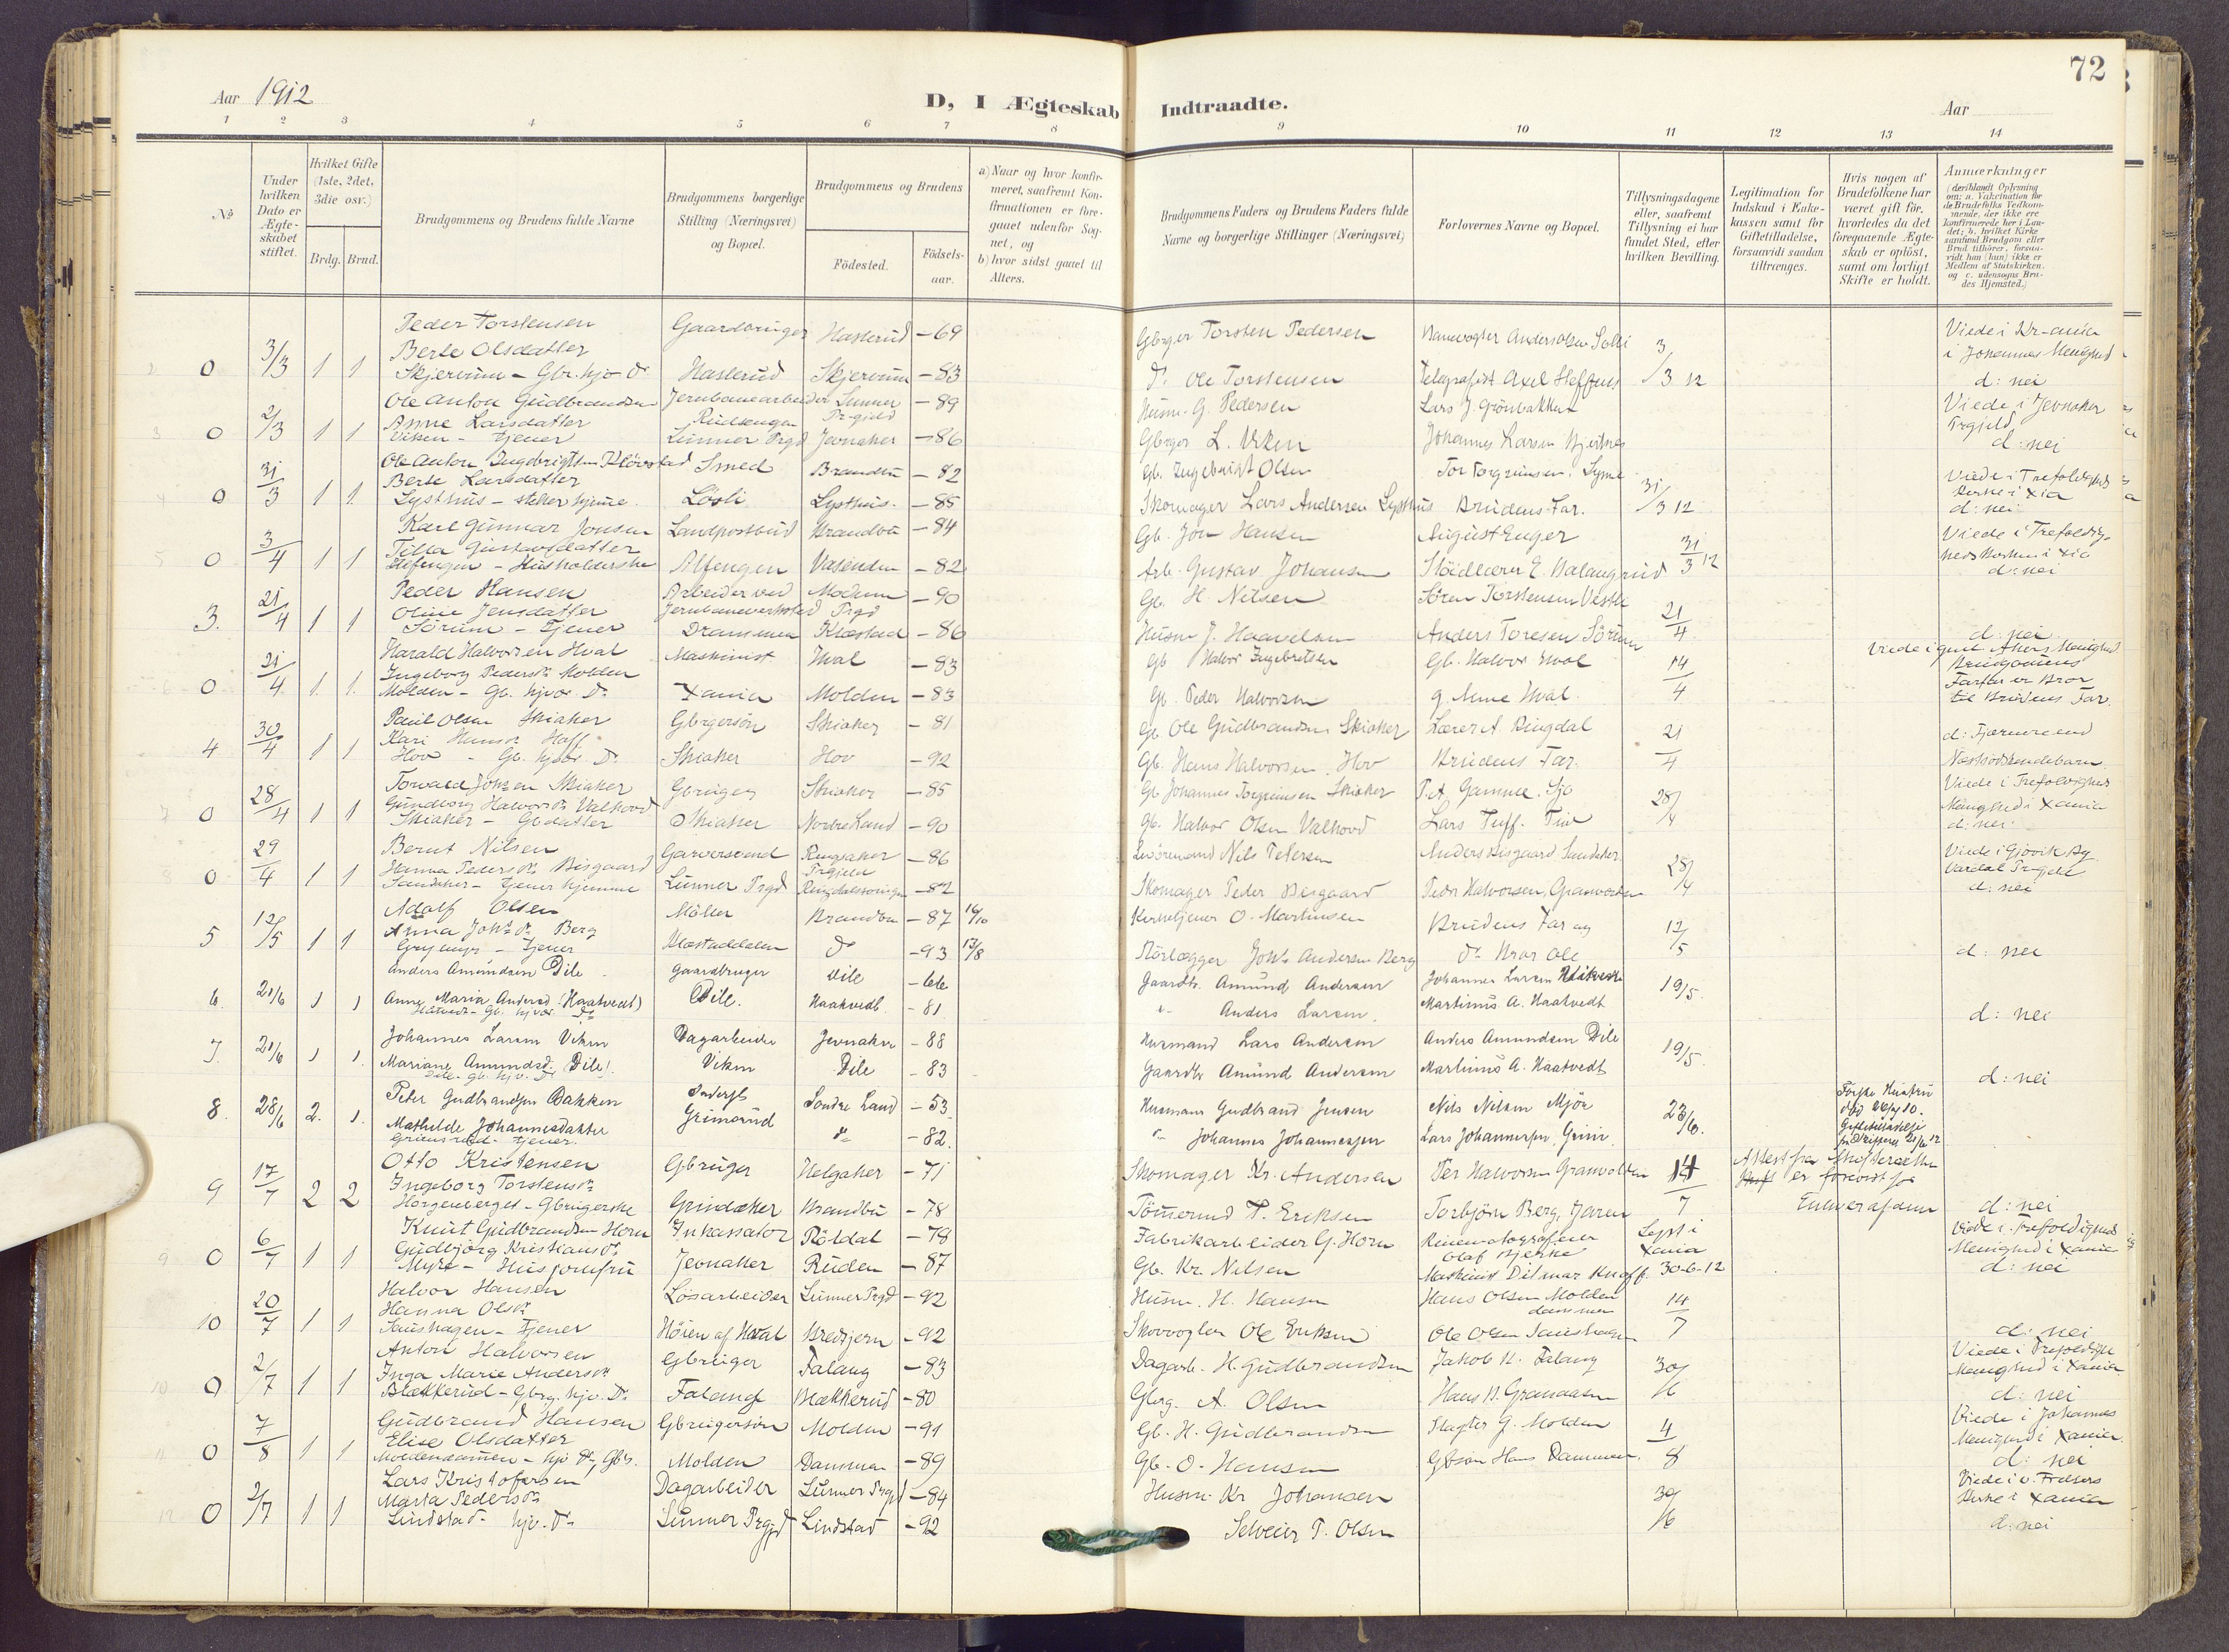 72
Aar 1912
D, I Ægteskab Indtraadte.
Aar
1 2 3 4 5 6 7 8 9 10 11 12 13 14
No
Under hvilken Dato er Ægteskabet stiftet.
Hvilket Gifte (1ste, 2det, 3die osv.)
Brdg. Brud.
Brudgommens og Brudens fulde Navne
Brudgommens borgerlige Stilling (Næringsvei) og Bopæl.
Brudgommens og Brudens
Fødested.
Fødselsaar.
a) Naar og hvor konfirmeret, saafremt Konfirmationen er foregaaet udenfor Sognet, og
b) hvor sidst gaaet til Alters.
Brudgommens Faders og Brudens Faders fulde Navne og borgerlige Stillinger (Næringsvei)
Forlovernes Navne og Bopæl.
Tillysningsdagene eller, saafremt Tillysning ei har fundet Sted, efter hvilken Bevilling.
Legitimation for Indskud i Enkekassen samt for Giftetilladelse, forsaavidt saadan tiltrænges.
Hvis nogen af Brudefolkene har været gift før, hvorledes da det foregaaende Ægteskab er opløst, samt om lovligt Skifte er holdt.
Anmærkninger (deriblandt Oplysning om: a. Vakcination for de Brudefolks Vedkommende, der ikke ere konfirmerede her i Landet; b. hvilket Kirkesamfund Brudgom eller Brud tilhører, forsaavidt han (hun) ikke er Medlem af Statskirken, og c. udensogns Brudes Hjemsted.)
Peder Torstensen Gaardbruger Haslerud -69 Gbrger Torsten Pedersen Banevogter Anders Olsen Viede i Kr-ania
0 3/3 1 1 Berte Olsdatter i Johannes Menighed
Skjervum - Gbr. hjv D. Haslerud Skjervum -83 D. Ole Torstensen Telegrafist Axel 3/3 12 d: nei
Ole Anton Gudbrandsen Jernbanearbeider Lunner -89 Husm. G. Pedersen Lars J. Grønbakken Viede i Jevnaker
0 2/3 1 1 Anne Larsdatter Prgjeld Prgjeld
Viken - tjener Lunner Prgd Jevnaker -86 Gbrger L. Viken Johannes Larsen d: nei
Ole Anton Ingebrigtsen Kløvstad Smed Brandbu -82 Gb. Ingebrigt Olsen Tor Torgrimsen. Lynne Viede i Trefoldigheds
0 31/3 1 1 Berte Larsdatter Kirke i Xia
Lysthus - steller hjemme Løsli Lysthus. -85 Skomager Lars Andersen Lysthus Brudens Far. 31/3 12 d: nei
Karl Gunnar Jonsen Landpostbud Brandbu -84 Gb. Jon Hansen August Enger Viede i Trefoldig-
0 3/4 1 1 Tilla Gustavsdatter heds Kirken i Xia
Alfengen - Husholderske Alfengen Vasenden -82 Arb. Gustav Johansen 31/3 12 d: nei
Peder Hansen Arbeider ved Modum -90 Gb. H. Nilsen Søren Torstensen
3. 21/4 1 1 Oline Jensdatter Jernbaneverksted Prgd
Sørum - Tjener Drammen Klæstad -86 Husm J. Haavelsen Anders Toresen Sørum 21/4 d: nei
Harald Halvorsen Hval Maskinist Hval -83 Gb Halvor Ingebretsen Gb. Halvor Hval 14/4 Viede i gml. Akers Menighed.
0 21/4 1 1 Ingeborg Pedersdr Molden Brudgommens
Molden - Gb. hjv. Dr Xania Molden -83 Gb. Peder Halvorsen g. Anne Hval. Farfar er Bror til Brudens Far.
Paul Olsen Skiaker Gbrgersøn Skiaker -81 Gb. Ole Gudbrandsen Skiaker Lærer A. Ringdal 21/4 d: Fjernere end
4 30/4 1 1 Kari Hansdr Hoff
Hov - Gb. hjv. Dr Skiaker Hov -92 Gb. Hans Halvorsen Hov Brudens Far. Næstsødskendebarn.
Torvald Johsen Skiaker Gbruger Skiaker -85 Gb Johannes Torgrimsen Skiaker P.A. Gamme. Sjo 28/4 Viede i Trefoldigheds
0 28/4 1 1 Gundborg Halvorsdr Valhovd Menighed i Xania
Skiaker - Gbdatter Skiaker Nordre Land -90 Gb. Halvor Olsen Valhovd Lars d: nei.
Bernt Nilsen Garversvend Ringsaker -86 Nils Petersen Anders Bisgaard Viede i Gjøvik By
0 29/4 1 1 Hanna Pedersdr Bisgaard Prgjeld Vardal Prgjeld
tjener hjemme Lunner Prgd -82 Skomager Peder Bisgaard Peder Halvorsen, Granvolden 28/4 d: nei
Adolf Olsen Møller Brandbu -87 16/10 Kirketjener O. Martinsen Brudens Far og 12/5
5 12/5 1 1 Anna Johs Dr Berg
Tjener Klæstaddalen do -93 13/8 Rørlægger Johs Andersen Berg do Bror Ole d: nei
Anders Amundsen Dile gaardbruger Dile -66 Gaardb. Amund Andersen Johannes Larsen 19/5.
6. 21/6 1 1 Anne Maria Andersd (Haatvedt) Dile. Haakvedt. -81 " Anders Larsen. Martinus A. Haatvedt d: nei
Johannes Larsen Viken Dagarbeider Jevnaker -88 Husmand Lars Andersen Anders Amundsen Dile
7. 21/6 1 1. Mariane Amundsd. Dile Viken Dile -83 Gaardbr Amund Andersen Martinus A. Haatvedt 19/5. d: nei
Peter Gudbrandsen Bakken Søndre Land -53. Husmann Gudbrand Jensen Nils Nilsen Mjør Første Hustru
8. 28/6 2. 1. Mathilde Johannesdatter Grimsrud " -82. " Johannes Johannessen Lars Johannessen, Grini. 23/6. død
Grimsrud - tjener.
Otto Kristensen Gbruger Helgaker -71 Skomager Kr. Andersen Per Halvorsen Granvolden 14/7 Attest fra Skifteretten
9 17/7 2 2 Ingeborg Torstensdr er forevist for
Horgenberget - Gbrugerske Grindaker Brandbu -78 Tømmermd T. Eriksen Torbjørn Berg, Jaren Enhver af dem d: nei
Knut Gudbrandsen Horn Inkassator Røldal -78 Fabrikarbeider G. Horn Kinematografeier Lyst i Viede i Trefoldighed
0 6/7 1 1 Gudbjørg Kristiansdr Olaf Bjerke Xania Menighed i Xania
Myre - Husjomfru Jevnaker Ruden -87 Gb. Kr. Nilsen Maskinist Ditmar Knoff. 30-6-12 d: nei
Halvor Hansen Løsarbeider Lunner Prgd -92 Husm. H. Hansen Hans Olsen Molden 14/7
10 20/7 1 1 Hanna Olsdr dammen
Saushagen - Tjener Høien af Hval Bredtjern -92 Skovvogter Ole Eriksen Ole Olsen Saushagen d: nei
Anton Halvorsen Gbruger Falang -83 Dagarb. H. Gudbrandsen Jakob H. Falang 30/6 Viede i Trefoldigh
0 2/7 1 1 Inga Marie Andersdr Menighed i Xania
Blækkerud - Gbrg. hjv. Dr. Falang Blækkerud -80 Gbrg. A. Olsen Hans N. Granaasen d: nei
Gudbrand Hansen Gbrugersøn Molden -91 Gb. H. Gudbrandsen Slagter G. Molden 4/8 Viede i Johannes
0 7/8 1 1 Elise Olsdatter Menighed i Xania.
Moldendammen - hjv Dtr, Gbr. Molden Dammen -89 Gb. O. Hansen Gbsøn Hans Dammen. d: nei
Lars Kristofersen Dagarbeider Lunner Prgd -84 Husm. Kr Johansen 30/6 Viede i v. Frelsers
12 0 2/7 1 1 Marta Pedersdr Kirke i Xania
Lindstad - hjv. Dr Lunner Prgjd Lindstad -92 Selveier P. Olsen d: nei